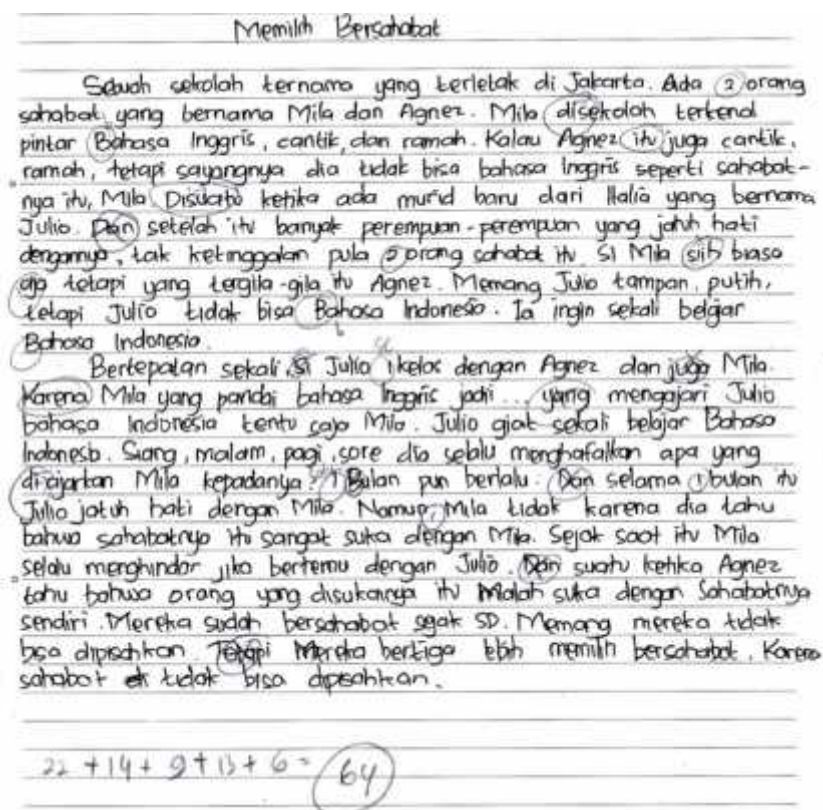 Memilih Bersahabat
Sebuah sekolah ternama yang terletak di Jakarta. Ada 2 orang
sahabat yang bernama Mila dan Agnez. Mila disekolah terkenal
pintar Bahasa Inggris, cantik, dan ramah. Kalau Agnez itu juga cantik,
ramah, tetapi sayangnya dia tidak bisa bahasa Inggris seperti sahabat-
nya itu, Mila. Disuatu ketika ada murid baru dari Italia yang bernama
Julio. Dan setelah itu banyak perempuan-perempuan yang jatuh hati
dengannya, tak ketinggalan pula 2 orang sahabat itu. Si Mila siih biasa
aja tetapi yang tergila-gila itu Agnez. Memang Julio tampan, putih,
tetapi Julio tidak bisa Bahasa Indonesia. Ia ingin sekali belajar
Bahasa Indonesia.
Bertepatan sekali, Si Julio 1 kelas dengan Agnez dan juga Mila.
Karena Mila yang pandai bahasa Inggris jadi... yang mengajari Julio
bahasa Indonesia tentu saja Mila. Julio giat sekali belajar Bahasa
Indonesia. Siang, malam, pagi, sore dia selalu menghafalkan apa yang
diajarkan Mila kepadanya. 1 Bulan pun berlalu. Dan selama 1 bulan itu
Julio jatuh hati dengan Mila. Namun, Mila tidak karena dia tahu
bahwa sahabatnya itu sangat suka dengan Mila. Sejak saat itu Mila
selalu menghindar jika bertemu dengan Julio. Dan suatu ketika Agnez
tahu bahwa orang yang disukainya itu Malah suka dengan Sahabatnya
sendiri. Mereka sudah bersahabat sejak SD. Memang mereka tidak
bisa dipisahkan. Tetapi Mereka bertiga lebih memilih bersahabat. Karena
sahabat tidak bisa dipisahkan.
22 + 14 + 9 + 13 + 6 = 64